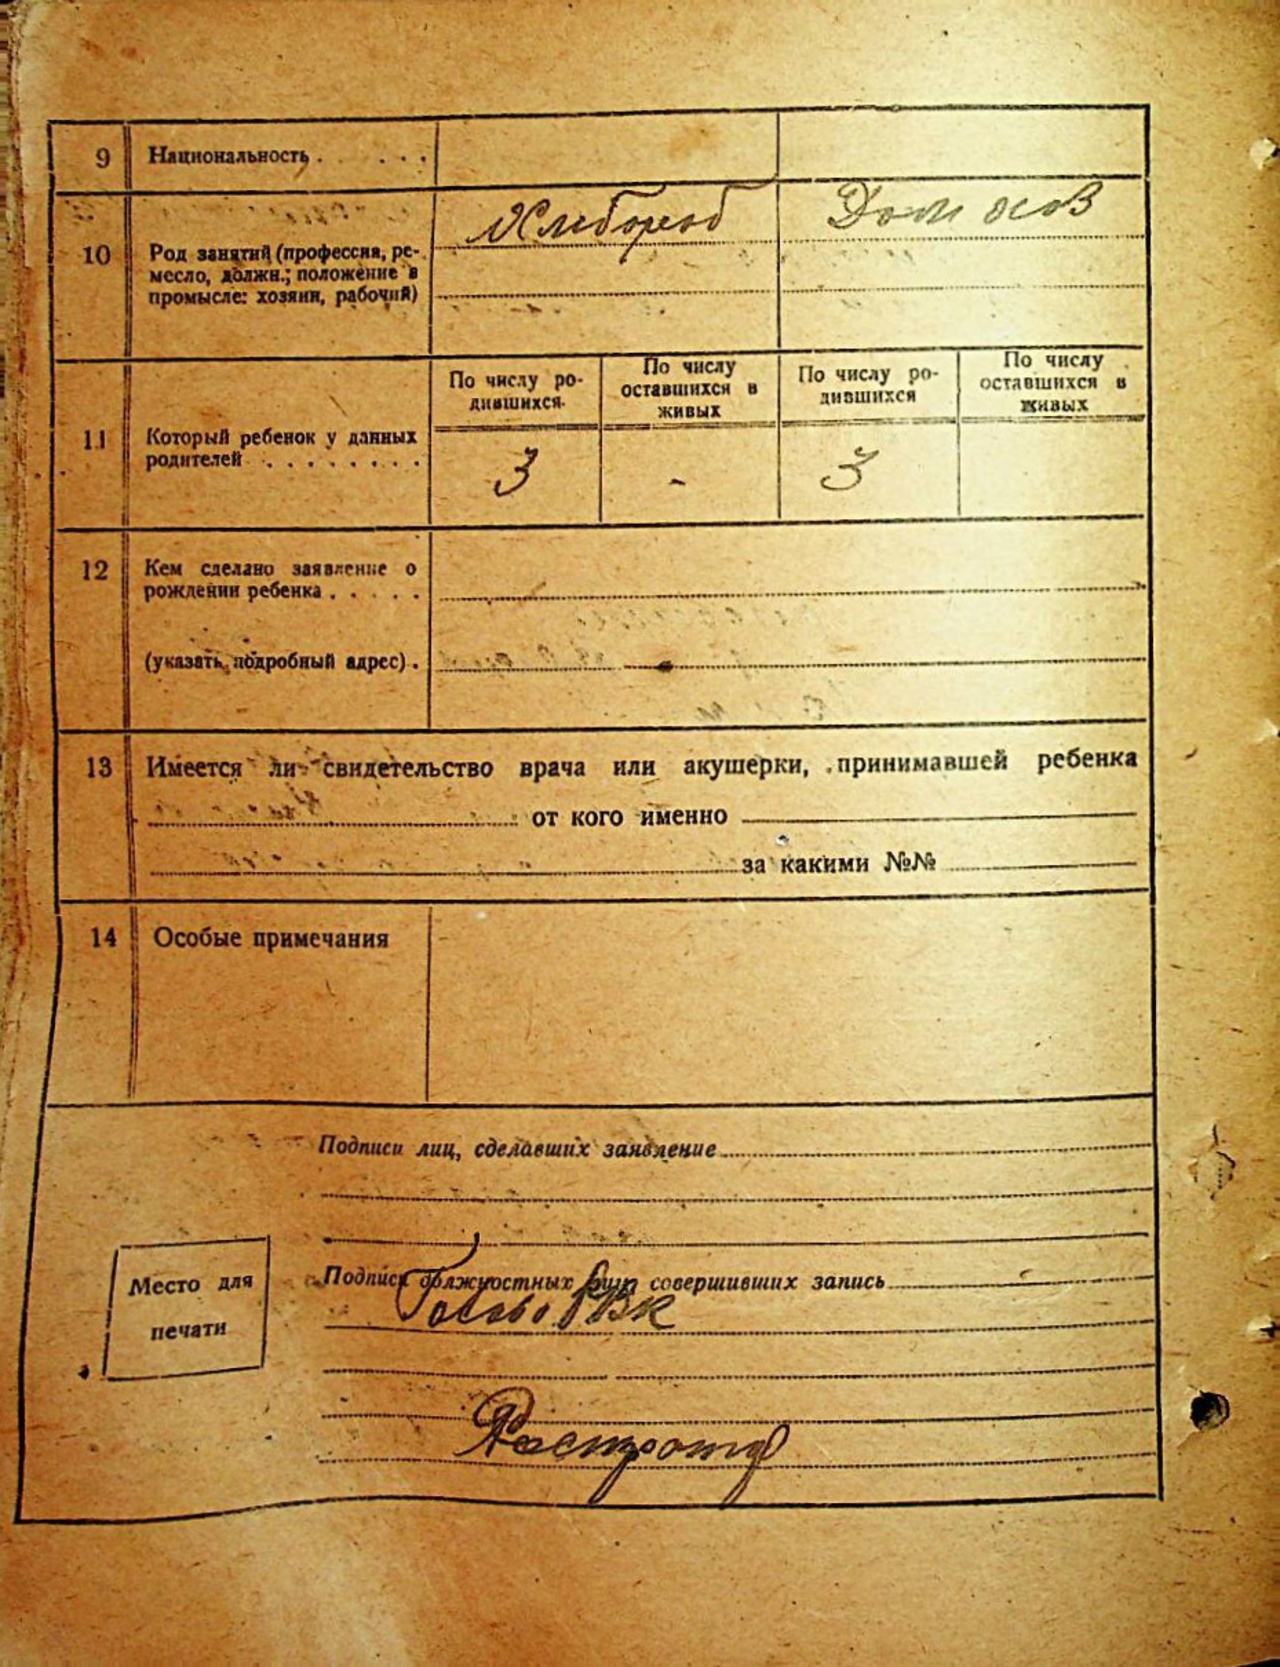 9 Национальность . . . .
10 Род занятий (профессия, ре-
месло, должн.; положение в
промысле: хозяин, рабочий)
Хлебороб Дом хоз
11 Который ребенок у данных
родителей . . . . . . . .
По числу ро-
дившихся
По числу
оставшихся в
живых
По числу ро-
дившихся
По числу
оставшихся в
живых
3 - 3
12 Кем сделано заявление о
рождении ребенка . . . . .
(указать подробный адрес) .
13 Имеется ли свидетельство врача или акушерки, принимавшей ребенка
от кого именно
за какими №№
14 Особые примечания
Подписи лиц, сделавших заявление
Подписи должностных лиц совершивших запись
Место для
печати